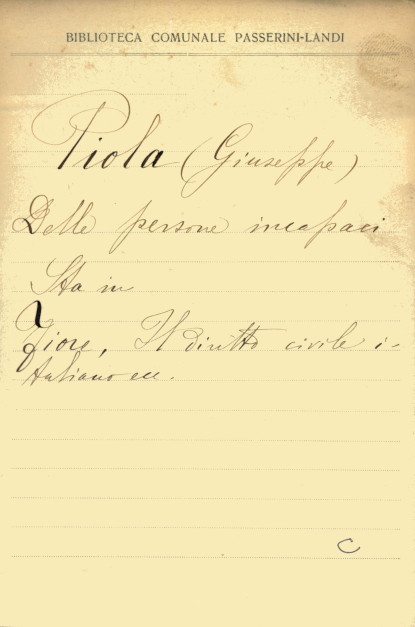 BIBLIOTECA COMUNALE PASSERINI-LANDI
Piola (Giuseppe)
Delle persone incapaci
Sta in
Fiore, Il diritto civile i-
taliano ecc.
C